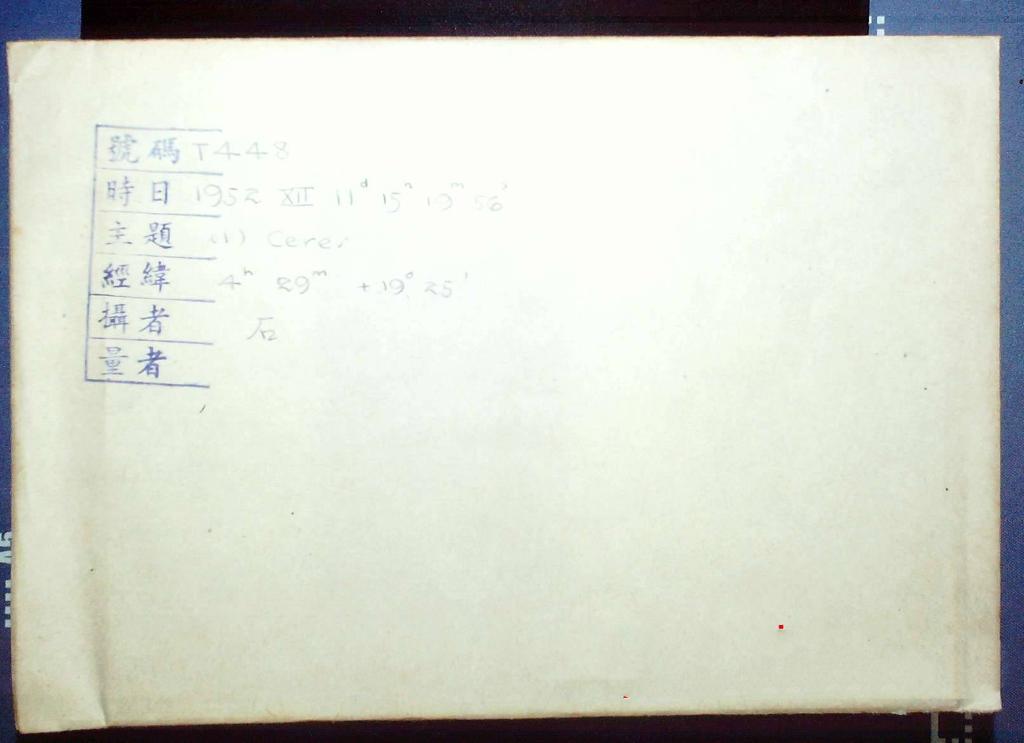 號碼 T448
時日 1952 XII 11ᵈ 15ʰ 19ᵐ 56ˢ
主題 (1) Ceres
經緯 4ʰ 29ᵐ +19° 25'
攝者 石
量者